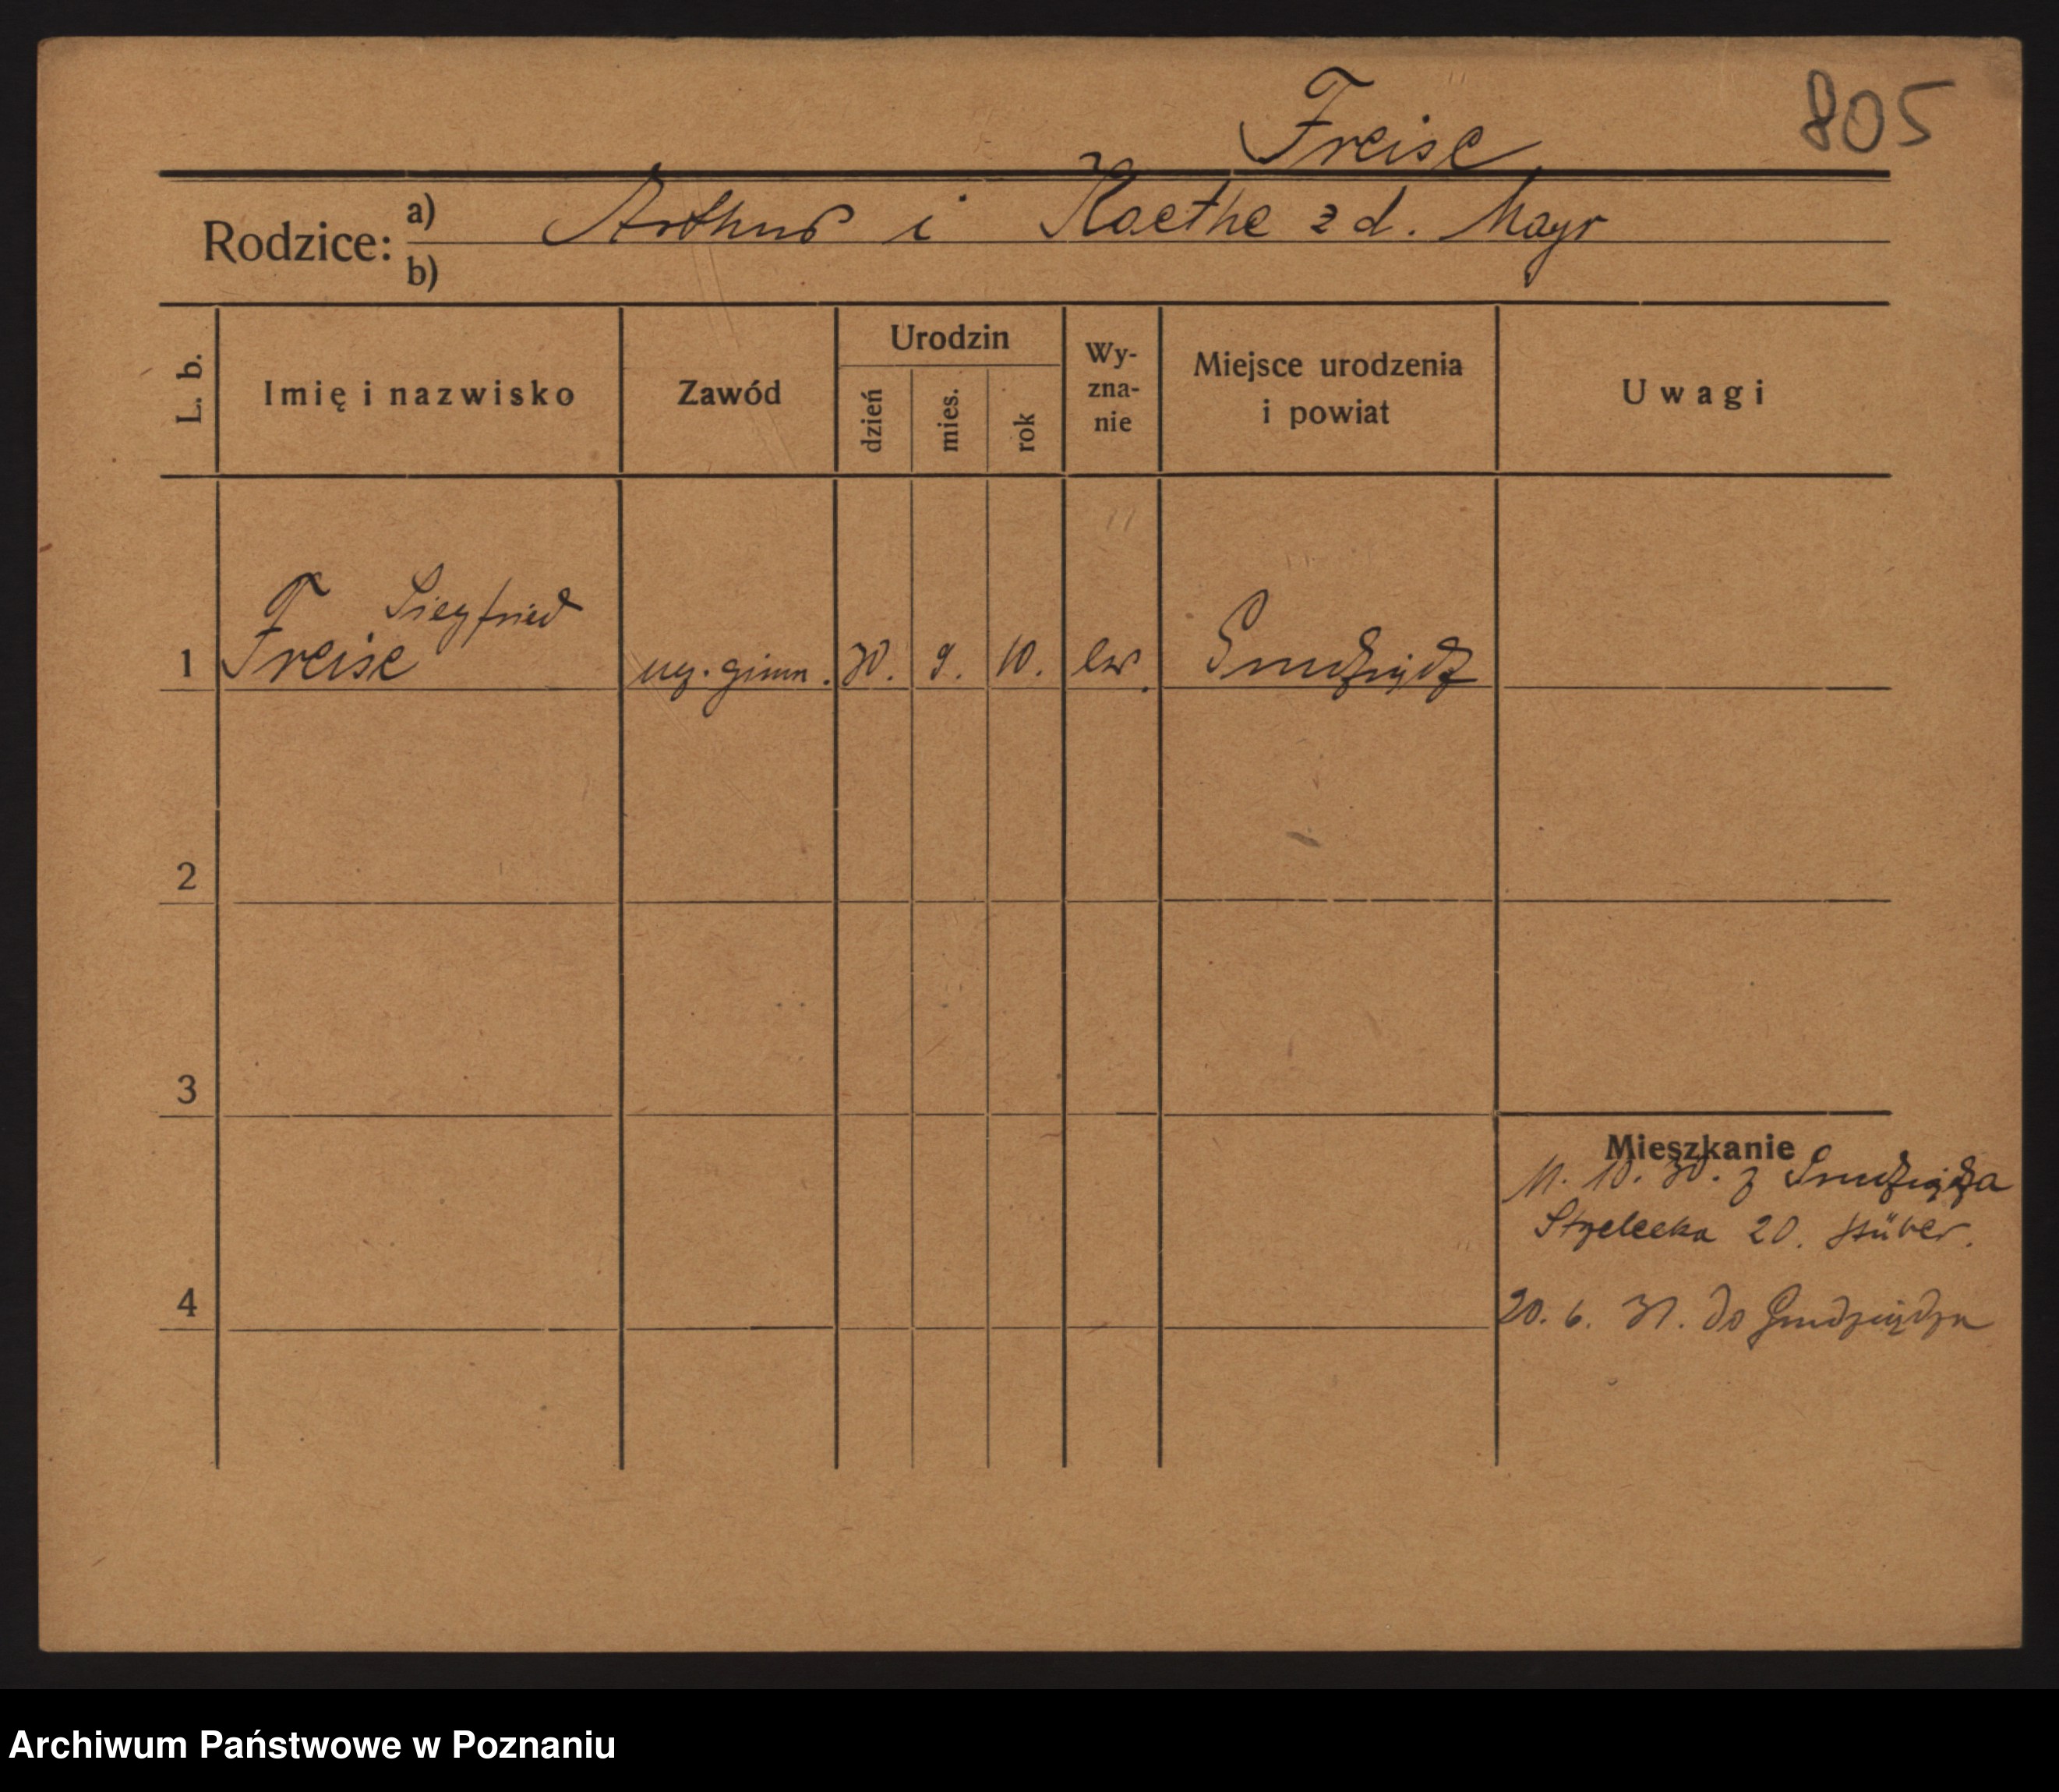 805
Freise
Rodzice: a) Arthur i Kaethe z d. Mayr
b)
L. b. Imię i nazwisko Zawód Urodzin dzień mies. rok Wy-zna-nie Miejsce urodzenia i powiat Uwagi
Siegfried
1 Freise ucz. gimn. 30. 9. 10. ew. Grudziądz
2
3
Mieszkanie
11. 10. 30. z Grudziądza
Strzelecka 20.
4
20. 6. 31. do Grudziądza
Archiwum Państwowe w Poznaniu